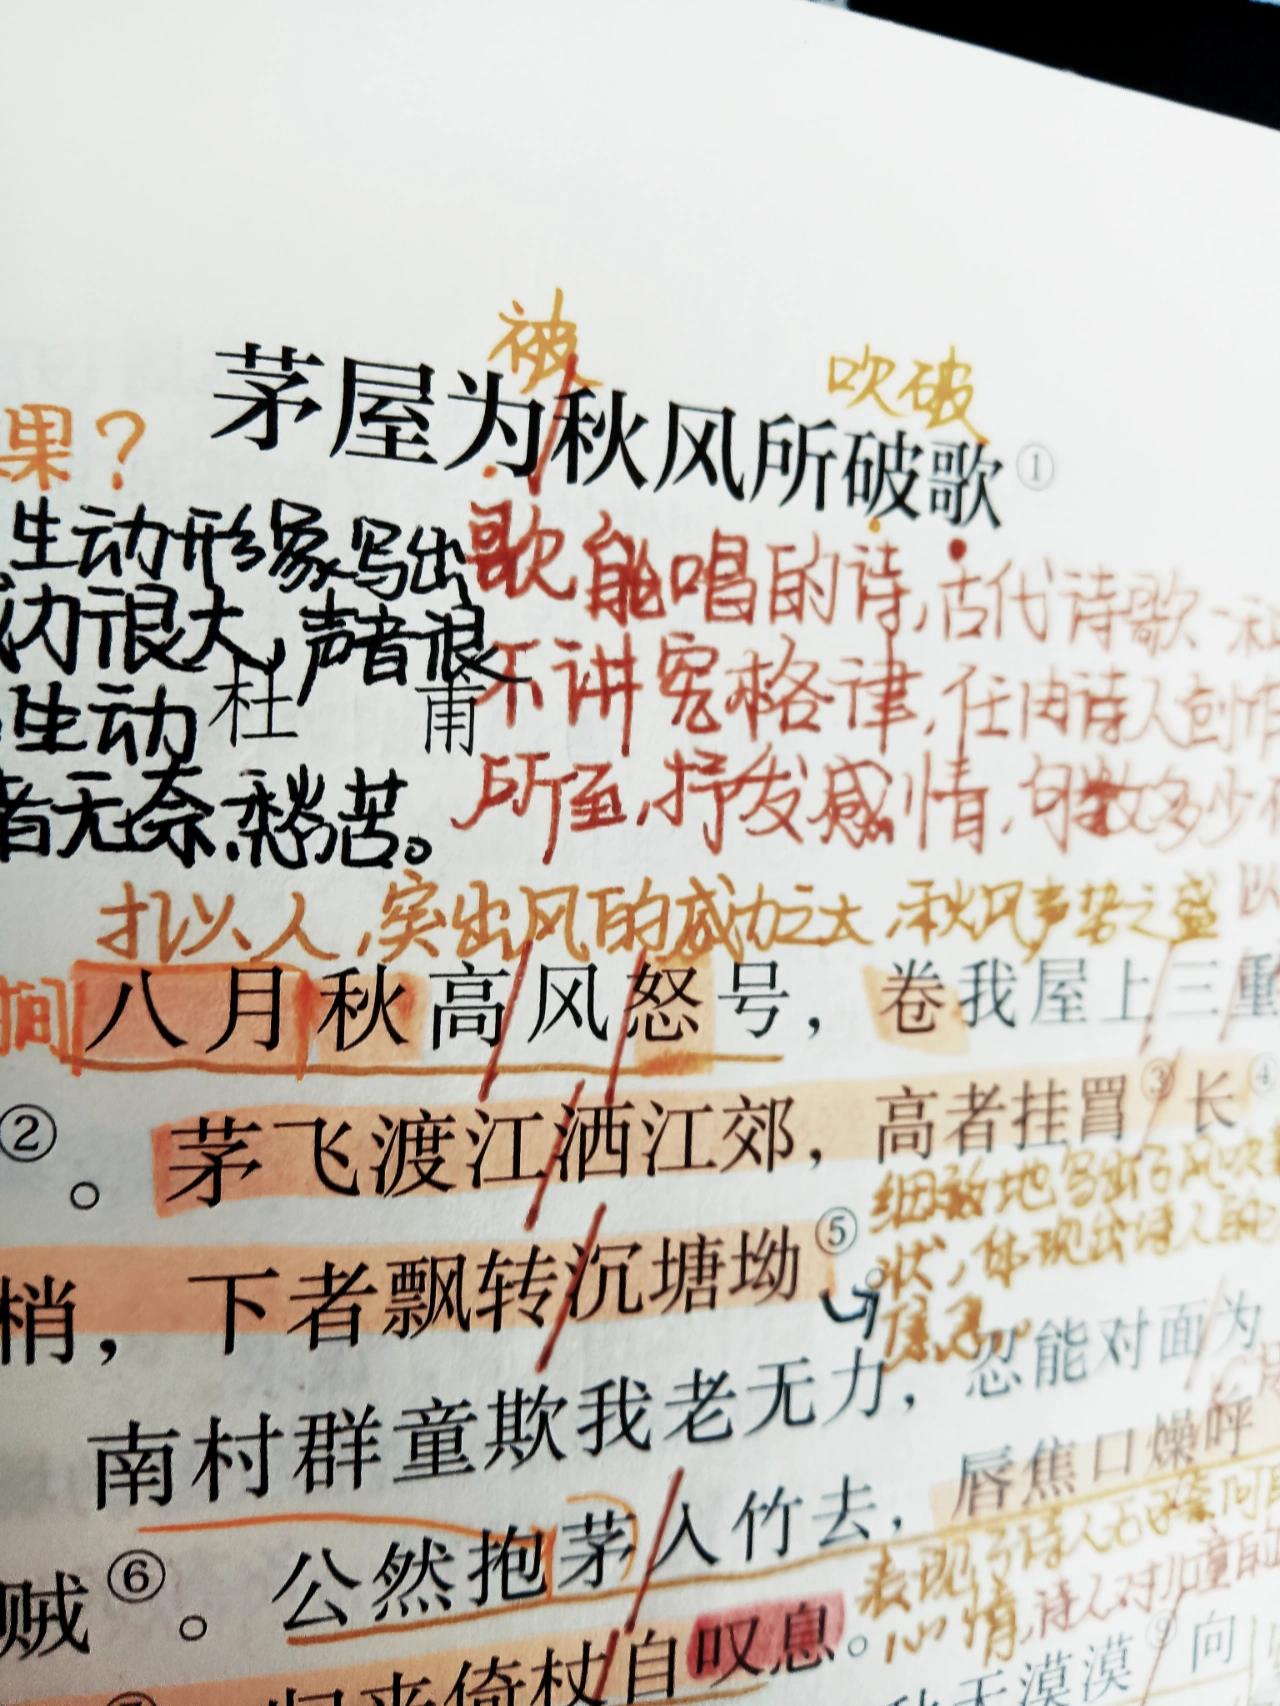 被
吹破
茅屋为秋风所破歌①
果？
生动形象写出
歌能唱的诗，古代诗歌一种
力很大，声音很
不讲究格律，任由诗人创作
生动
杜甫
所至，抒发感情，句数多少不
者无奈，愁苦。
以
拟人，突出风的威力之大，秋风声势之盛
间
八月秋高风怒号，卷我屋上三重
②。茅飞渡江洒江郊，高者挂罥③长④
细致地写出了风吹
梢，下者飘转沉塘坳⑤
状，体现出诗人的
焦急。
南村群童欺我老无力，忍能对面为
贼⑥。公然抱茅入竹去，唇焦口燥呼
表现了诗人
心情，诗人对儿童的
归来倚杖自叹息。
秋天漠漠⑨向